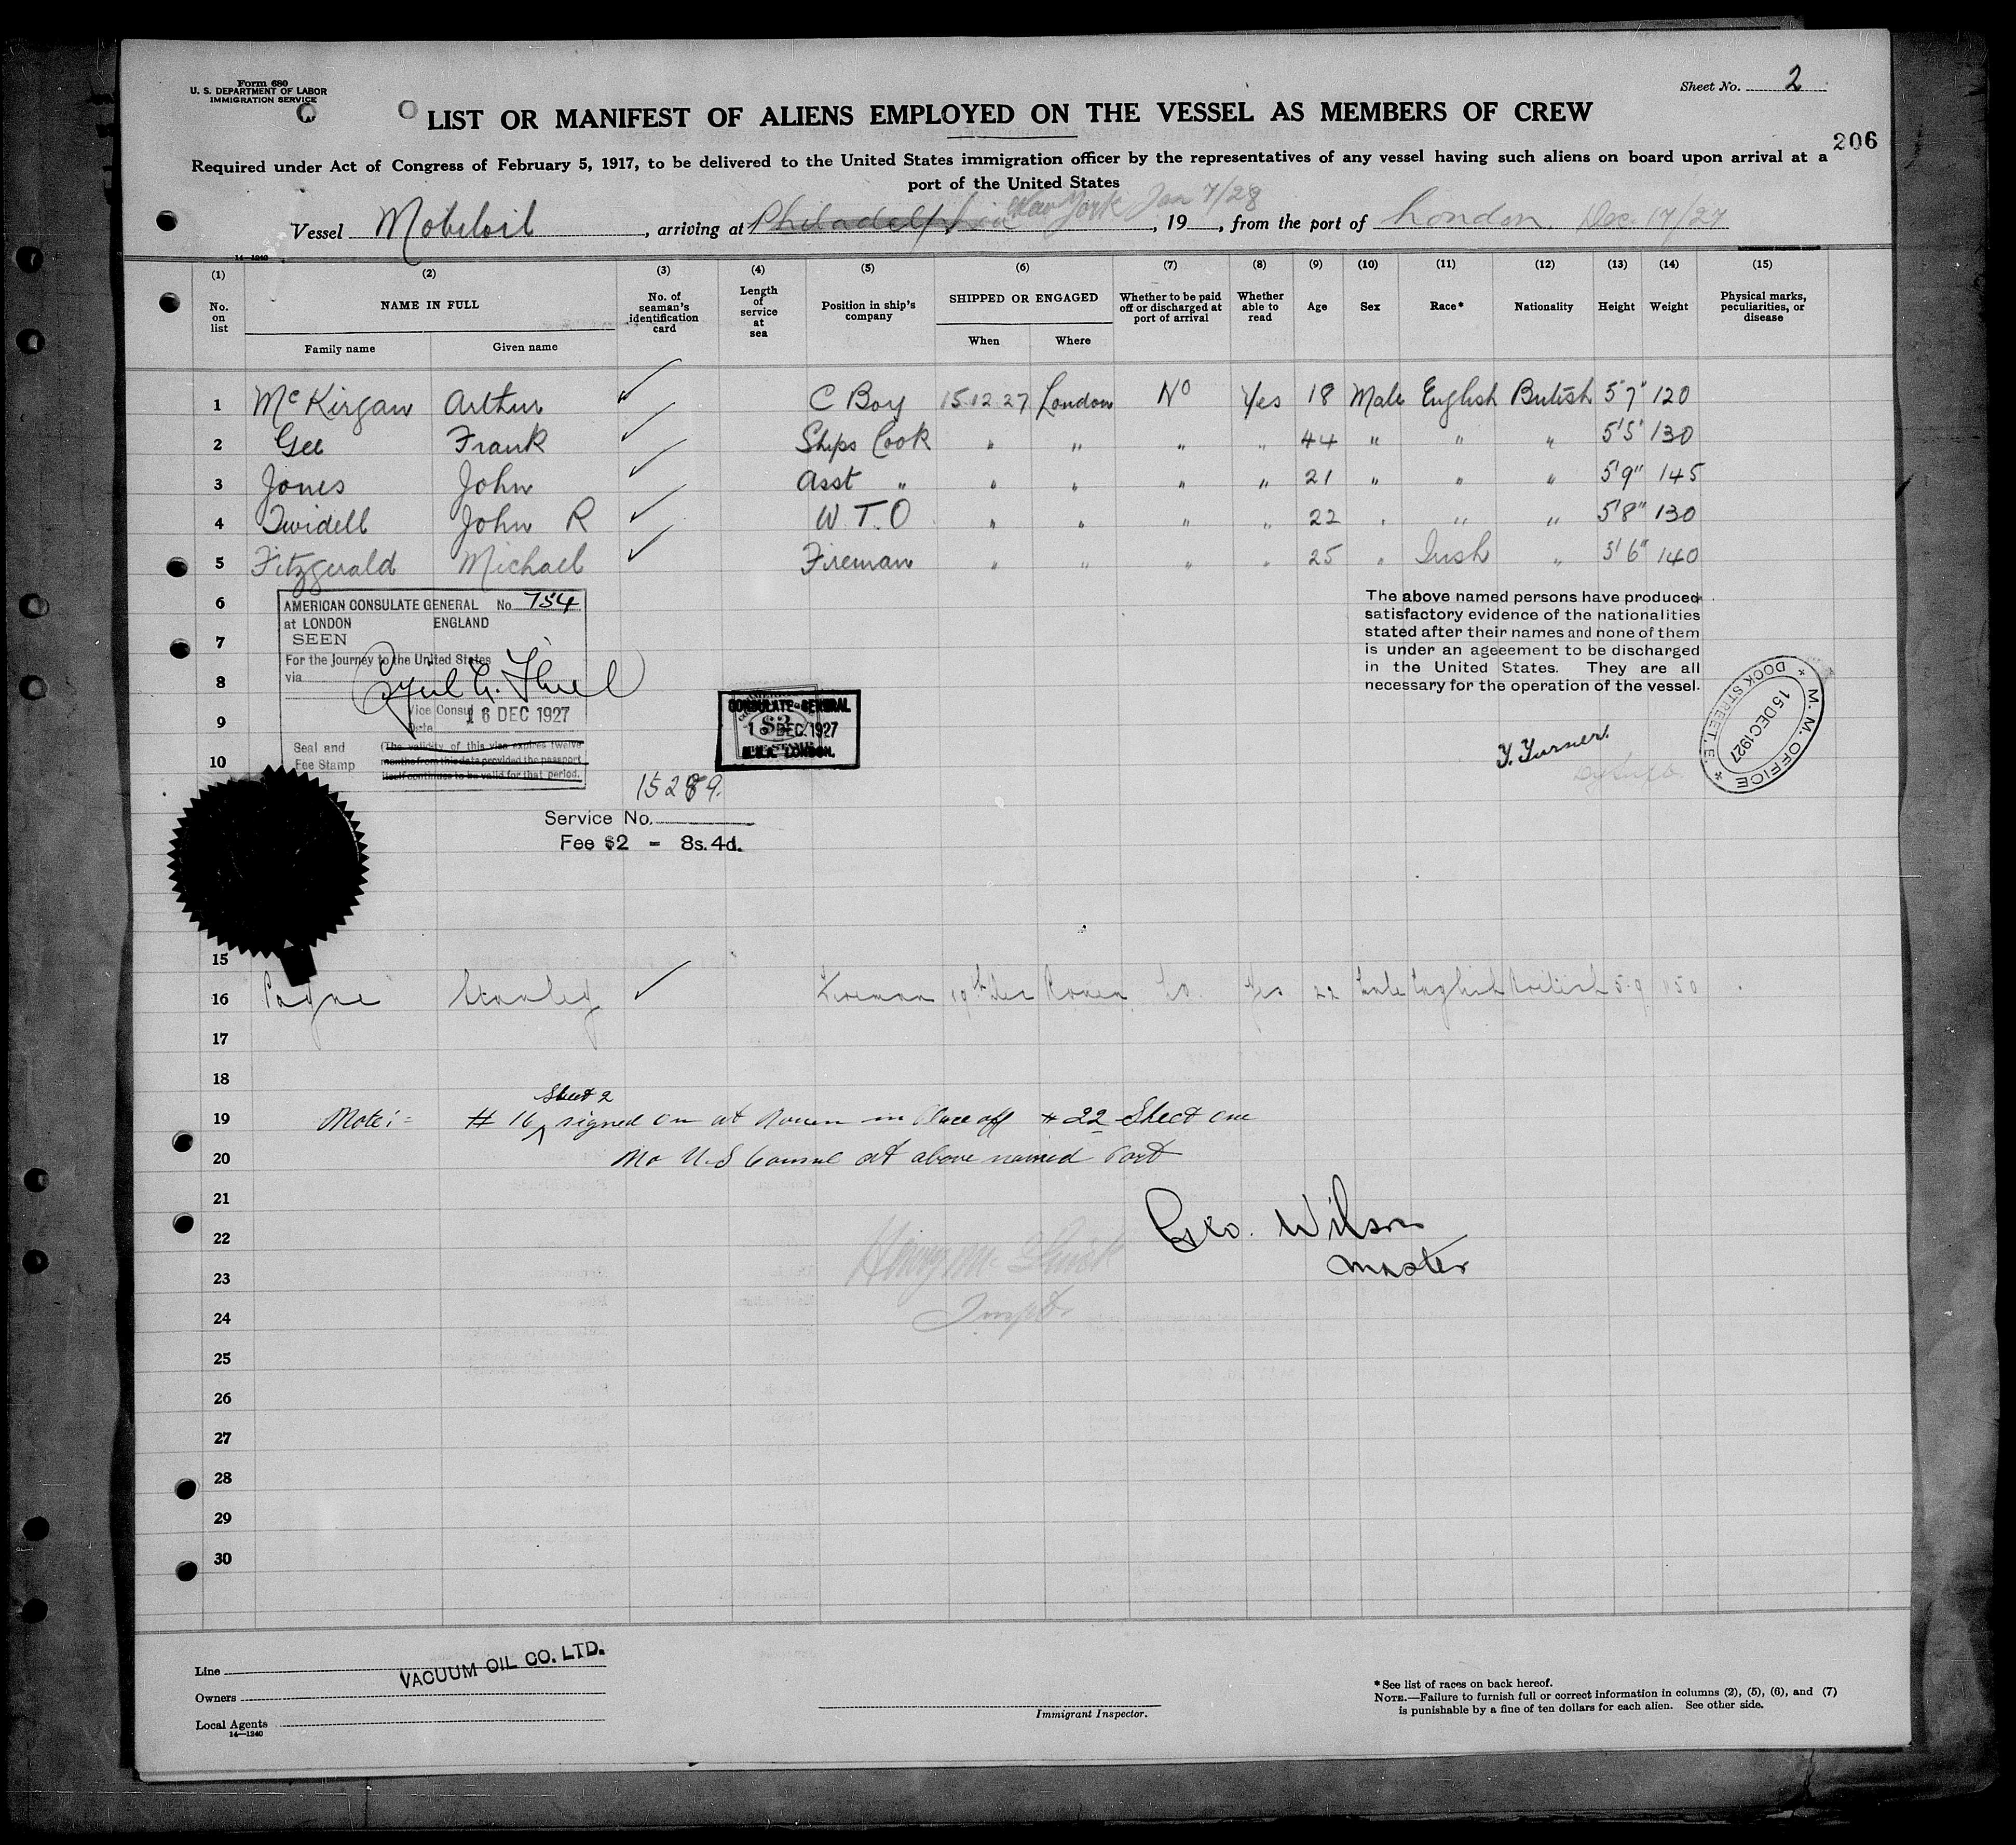 Form 680
U. S. DEPARTMENT OF LABOR
IMMIGRATION SERVICE
Sheet No. 2
LIST OR MANIFEST OF ALIENS EMPLOYED ON THE VESSEL AS MEMBERS OF CREW
206
Required under Act of Congress of February 5, 1917, to be delivered to the United States immigration officer by the representatives of any vessel having such aliens on board upon arrival at a
port of the United States
Vessel Mobiloil, arriving at Philadelphia New York Jan 7/28, 19, from the port of London. Dec. 17/27
14-1240
(1) (2) (3) (4) (5) (6) (7) (8) (9) (10) (11) (12) (13) (14) (15)
No. on list NAME IN FULL No. of seaman's identification card Length of service at sea Position in ship's company SHIPPED OR ENGAGED Whether to be paid off or discharged at port of arrival Whether able to read Age Sex Race* Nationality Height Weight Physical marks, peculiarities, or disease
Family name Given name When Where
1 McKirgan Arthur ✓ C Boy 15.12.27 London No Yes 18 Male English British 5'7" 120
2 Gee Frank ✓ Ships Cook " " " " 44 " " " 5'5" 130
3 Jones John ✓ Asst " " " " " 21 " " " 5'9" 145
4 Twidell John R ✓ W.T.O " " " " 22 " " " 5'8" 130
5 Fitzgerald Michael ✓ Fireman " " " " 25 " Irish " 5'6" 140
6
7
8
9
10
AMERICAN CONSULATE GENERAL No. 754
at LONDON ENGLAND
SEEN
For the Journey to the United States
via
Vice Consul
Date 16 DEC 1927
Seal and
Fee Stamp
(The validity of this visa expires twelve
months from this date provided the passport
itself continues to be valid for that period.
CONSULATE-GENERAL
$2
16 DEC. 1927
LONDON.
The above named persons have produced
satisfactory evidence of the nationalities
stated after their names and none of them
is under an ageeement to be discharged
in the United States. They are all
necessary for the operation of the vessel.
Y. Turner.
M. M. OFFICE
15 DEC 1927
DOCK STREET. E.
15289.
Service No.
Fee $2 - 8s. 4d.
15
16 Payne Stanley ✓ Fireman 19th Dec Rouen No. Yes 22 Male English British 5-9 150
17
18
Sheet 2
19 Note:= # 16 signed on at Rouen in Place off # 22 Sheet one
20 No U.S Consul at above named Port
21
22 Geo. Wilson
23 Master
Henry
Inspt.
24
25
26
27
28
29
30
Line
VACUUM OIL CO. LTD.
Owners
Local Agents
14-1240
Immigrant Inspector.
* See list of races on back hereof.
NOTE.—Failure to furnish full or correct information in columns (2), (5), (6), and (7)
is punishable by a fine of ten dollars for each alien. See other side.